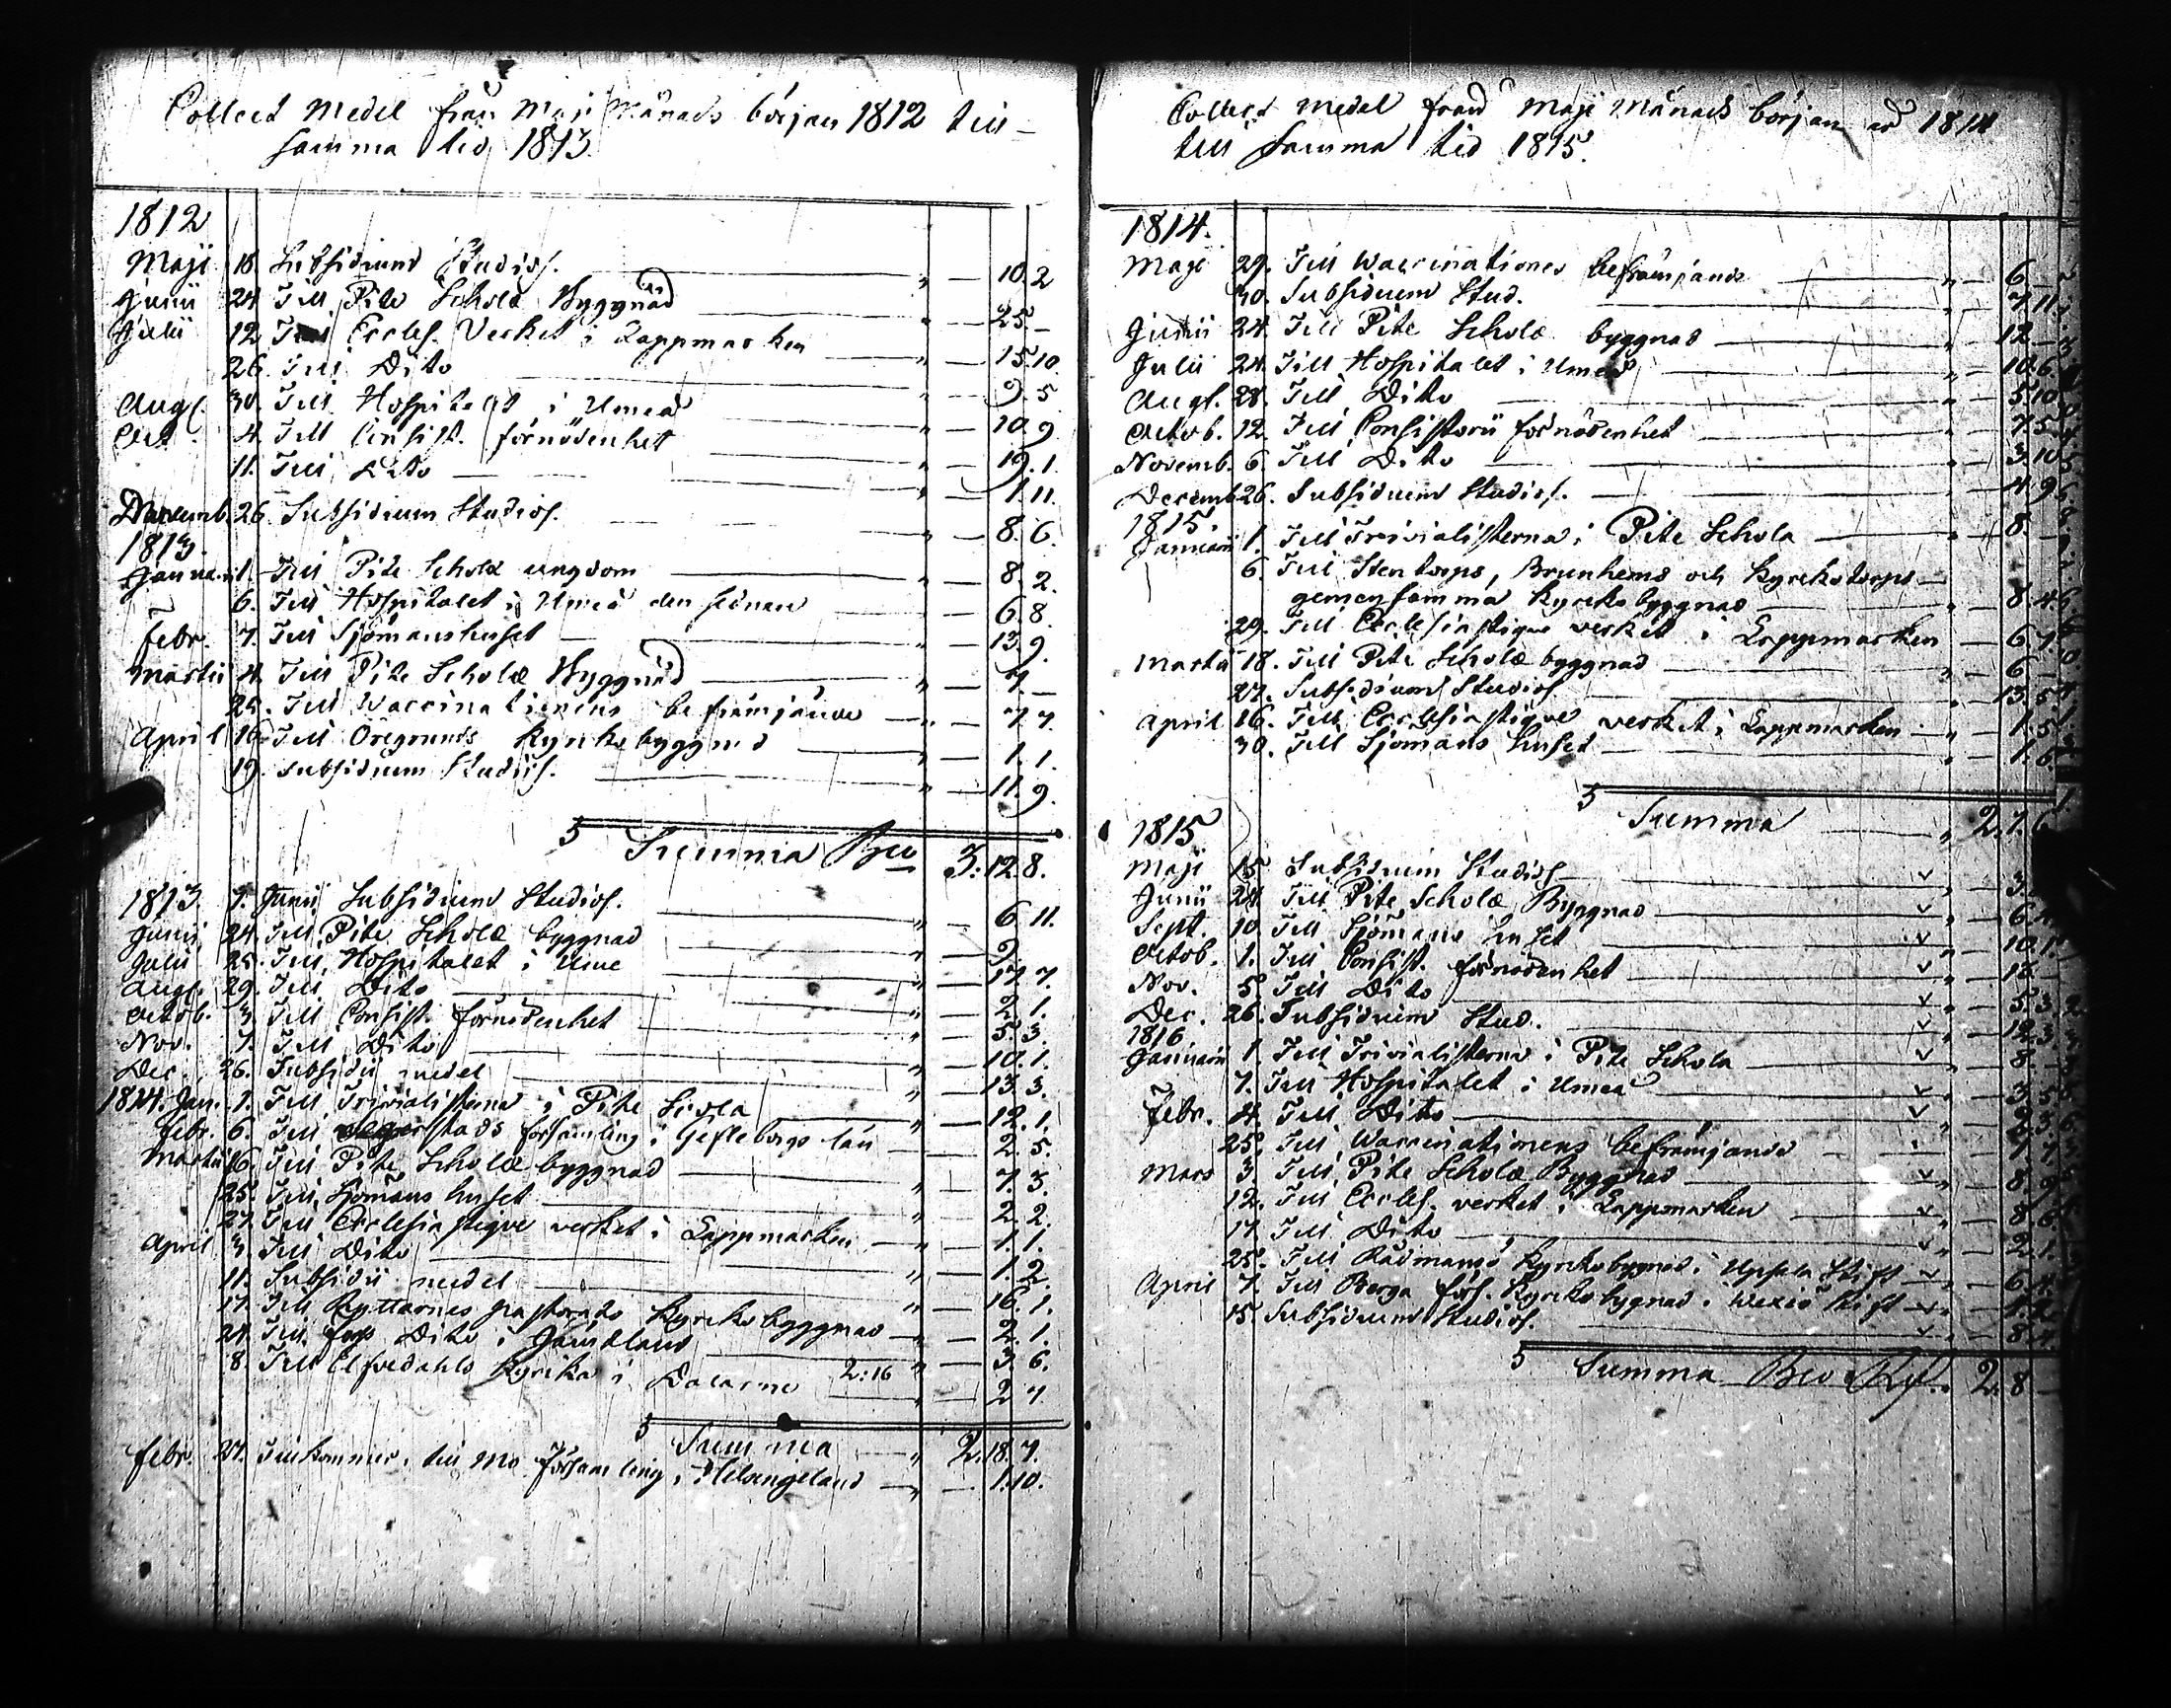 Collect Medel från Maji Månads början 1812 till
samma tid 1813.
1812
Maji 18. Subsidium Studios. " — 10. 2
Junii 24 Till Pite Scholæ Byggnad " — 25. —
Julii 12 Till Eccles. Verket i Lappmarken " — 15. 10.
26. Till Dito " — 9. 5
Augs. 30. Till Hospitalet i Umeå " — 10. 9
Oct. 4. Till Consist. förnödenhet " — 19. 1.
11. Till Dito " — 1. 11.
Decemb. 26. Subsidium Studios. " — 8. 6.
1813.
Januari 1. Till Pite Scholæ ungdom " — 8. 2.
6. Till Hospitalet i Umeå den sednare " — 6. 8.
Febr. 7. Till Sjömanshuset " — 13. 9.
Martii 4. Till Pite Scholæ Byggnad " — 7. —
25. Till Vaccinationens befrämjande " — 7. 7.
April 16. Till Öregrunds Kyrkobyggnad " — 1. 1.
19. Subsidium Studios. " — 11. 9.
Summa Bco 3: 12. 8.
1813. 7. Junii Subsidium Studios. " — 6. 11.
Junii 24. Till Pite Scholæ byggnad " — 9.
Julii 25. Till Hospitalet i Ume " — 17. 7.
Augs. 29. Till Dito " — 2. 1.
Octob. 3. Till Consist. förnödenhet " — 5. 3.
Nov. 7. Till Dito " — 10. 1.
Dec. 26. Subsidii medel " — 13. 3.
1814. Jan. 1. Till Trivialisterna i Pite Schola " — 12. 1.
Febr. 6. Till stads församling i Gefleborgs län " — 2. 5.
Martii 16. Till Pite Scholæ byggnad " — 7. 3.
25. Till Sjömans huset " — 2. 2.
27. Till Ecclesiastique verket i Lappmarken " — 1. 1.
April 3. Till Dito " — 1. 2.
11. Subsidii medel " — 16. 1.
17. Till Ryttarnes pastorats Kyrkobyggnad " — 2. 1.
24. Till Dito i Jämtland " — 3. 6.
8. Till Elfvedahls Kyrka i Dalarne 2:16 " — 2 7.
Summa " 2. 18. 7.
Febr. 27. Tillkommer, till Mo församling i Helsingeland " — 1. 10.
Collect Medel från Maji Månads början 1814
till samma tid 1815.
1814.
Maji 29. Till Waccinationes befrämjande " — 6.
30. Subsidium Stud. " — 7. 11.
Junii 24. Till Pite Scholæ byggnad " — 12
Julii 24. Till Hospitalet i Umeå " — 10. 6.
Augs. 28. Till Dito " — 5. 10.
Octob. 12. Till Consistorii förnödenhet " — 7. 5.
Novemb. 6. Till Dito " — 3. 10
Decemb. 26. Subsidium Studios. " — 4. 9
1815.
Januarii 1. Till Trivialisterna i Pite Schola " — 8.
6. Till Stentorps, Brunhems och Kyrketorps
gemensamma Kyrkobyggnad " — 8. 4.
29. Till Ecclesiastique verket i Lappmarken — 6. 7.
Martii 18. Till Pite Scholæ byggnad " — 6
27. Subsidium Studios. " — 13. 5
April 16. Till Ecclesiastique verket i Lappmarken " — 1. 5
30. Till Sjömans huset " — 1. 6.
Summa " 2. 7. 6
1815
Maji 15 Subsidium Studios " — 3.
Junii 24. Till Pite Scholæ Byggnad " — 6. 4
Sept. 10 Till Sjömans huset " — 10. 1.
Octob. 1. Till Consist. förnödenhet " — 18.
Nov. 5 Till Dito " — 5. 3.
Dec. 26. Subsidium Stud. " — 12. 3
1816
Januarii 1. Till Trivialisterna i Pite Schola " — 8.
7. Till Hospitalet i Umeå " — 3. 5
Febr. 4. Till Dito " — 2. 3
25. Till Waccinationens befrämjande — 1. 7.
Mars 3. Till Pite Scholæ Byggnad " — 8. 9
12. Till Eccles. verket i Lappmarken " — 8. 6.
17. Till Dito " — 2. 1.
25. Till Rådmansö Kyrkobygnad i Upsala Stift " — 6. 4.
April 7. Till Berga förs. Kyrkobygnad i Wexiö Stift " — 1. 2
15. Subsidium Studios. " — 8. 4.
Summa Bco Rd. 2. 8 —